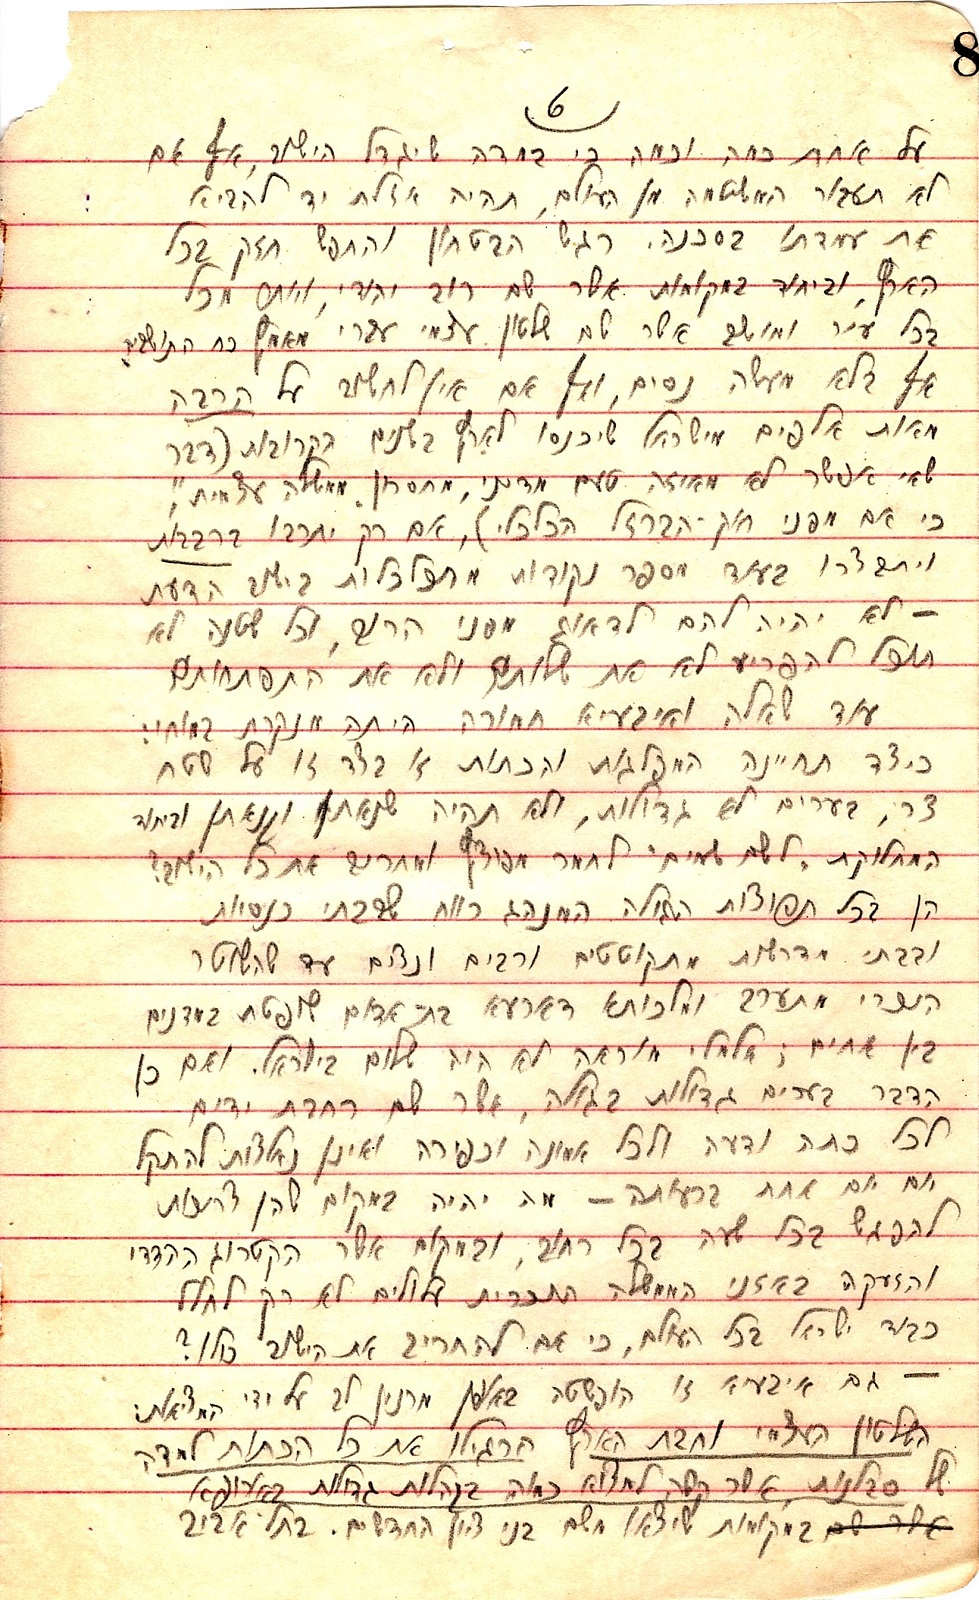 8
6
על אחת כמה וכמה כי במדה שיגדל הישוב, אף אם
לא תעבור המשטמה מן העולם, תהיה אזלת יד להביא
את עמדתו בסכנה. רגש הבטחון והחפש חזק בכל
הארץ, וביחוד במקומות אשר שם רוב יהודי, ויותר מכל
בכל עיר ומושב אשר שם שלטון עצמי עברי מאמץ כח התושבים.
אף בלא מעשה נסים, ואף אם אין לחשוב על הרבה
מאות אלפים מישראל שיכנסו לארץ בשנים הקרובות (דבר
שאי אפשר לא מאיזה טעם מדיני, מחסרון "ממשלה עצמית",
כי אם מפני חק-הברזל הכלכלי), אם רק יתרבו ברבבות
ויתבצרו בעוד מספר נקודות מתבצרות בישוב הדעת
– לא יהיה להם לדאוג מפני הרוב, וכל שטנה לא
תוכל להפריע לא את שלותם ולא את התפתחותם
עוד שאלה ואיבעיא חמורה היתה מנקרת במוחי:
כיצד תחיינה המפלגות והכתות זו בצד זו על שטח
צר, בערים לא גדולות, ולא תהיה שנאתן וקנאתן וביחוד
המחלוקת "לשם שמים" לחמר מפוצץ ומחריב את כל הישוב?
הן בכל תפוצות הגולה המנהג רווח שבבתי כנסיות
ובבתי מדרשות מתקוטטים ורבים ונצים עד שהשוטר
הנכרי מתערב ומלכותא דארעא בת-אדום שופטת במדנים
בין אחים; אלמלי מוראה לא היה שלום בישראל. ואם כן
הדבר בערים גדולות בגולה, אשר שם רחבת ידים
לכל כתה ודעה ולכל אמונה וכפירה ואינן נאלצות להתקל
יום יום אחת ברעותה – מה יהיה במקום שהן צריכות
להפגש בכל שעה בכל רחוב, ובמקום אשר הקטרוג ההדדי
והזעקה באזני הממשלה הנכרית עלולים לא רק לחלל
כבוד ישראל בכל העולם, כי אם להחריב את הישוב כולו?
– גם איבעיא זו הופשטה באופן מרנין לב על ידי המציאות:
השלטון העצמי וחבת הארץ הרגילו את כל הכתות למדה
של סבלנות, אשר קשה למצוא כמוה בקהלות גדולות באירופא
אשר שם במקומות שיצאו משם בני ציון החדשים. בתל-אביב